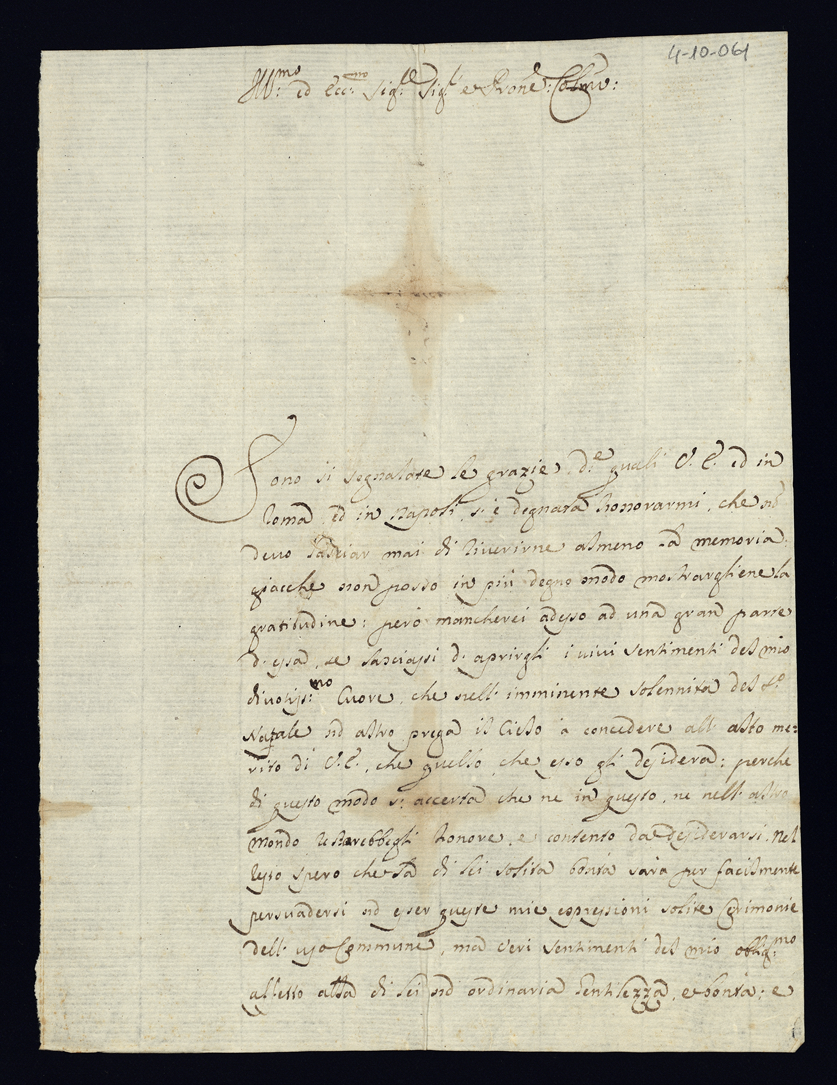 4-10-061
Ill:mo ed Ecc:mo Sig:e Sig:e e Pron'e: Colmo:
Sono si segnalate le grazie, d:e quali V. E. ed in
Roma, ed in Napoli, s'è degnata honorarmi, che nõ
devo lasciar mai di riverirne almeno la memoria.
giacche non posso in più degno modo mostrargliene la
gratitudine: però mancherei adesso ad una gran parte
d'essa, se lasciassi d'aprirgli i vivi sentimenti del mio
divotiss:mo Cuore, che nell'imminente solennità del S:o
Natale nõ altro prega il Cielo à concedere all'alto me=
rito di V. E., che quello, che esso gli desidera; perche
di questo modo s'accerta che ne in questo, ne nell'altro
mondo restarebbegli honore, e contento da desiderarsi. Nel
resto spero che la di lei solita bontà sarà per facilmente
persuadersi nõ esser queste mie espressioni solite Cerimonie
dell'uso Commune, ma veri sentimenti del mio obblig:mo
affetto alla di lei nõ ordinaria gentilezza, e bontà; e